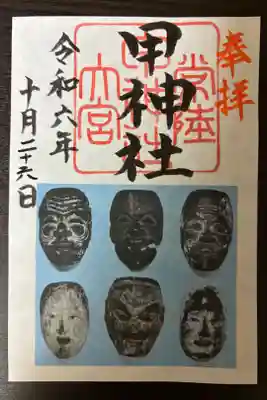 奉拝
常陸
甲神社
大宮
令和六年
十月二十六日